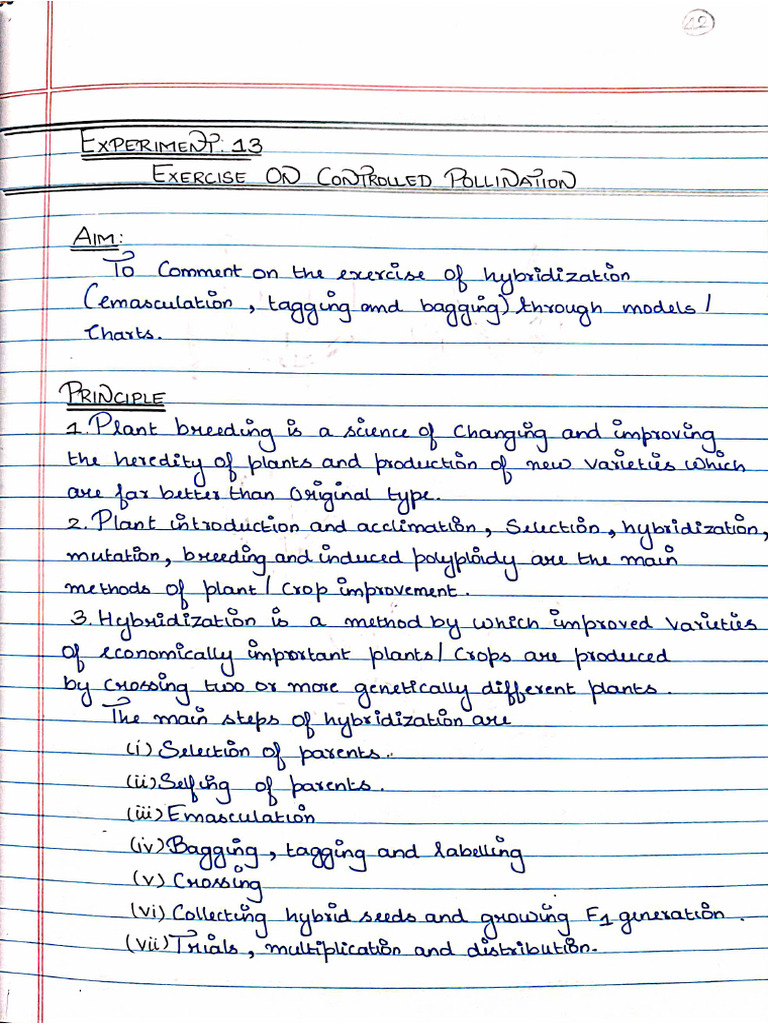 12
EXPERIMENT: 13
EXERCISE ON CONTROLLED POLLINATION
AIM:
To Comment on the exercise of hybridization
(emasculation, tagging and bagging) through models /
Charts.
PRINCIPLE
1. Plant breeding is a science of Changing and improving
the heredity of plants and production of new varieties which
are far better than Original type.
2. Plant introduction and acclimation, Selection, hybridization,
mutation, breeding and induced polyploidy are the main
methods of plant / Crop improvement.
3. Hybridization is a method by which improved varieties
of economically important plants / Crops are produced
by crossing two or more genetically different plants.
The main steps of hybridization are
(i) Selection of parents.
(ii) Selfing of parents.
(iii) Emasculation
(iv) Bagging, tagging and labelling
(v) Crossing
(vi) Collecting hybrid seeds and growing F1 generation.
(vii) Trials, multiplication and distribution.